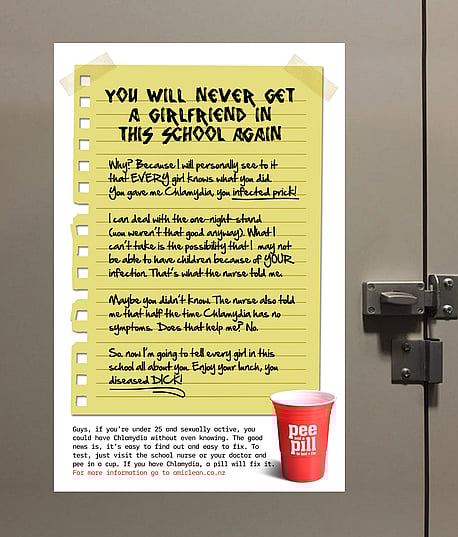 YOU WILL NEVER GET
A GIRLFRIEND IN
THIS SCHOOL AGAIN
Why? Because I will personally see to it
that EVERY girl knows what you did.
You gave me Chlamydia, you infected prick!
I can deal with the one-night-stand
(you weren't that good anyway). What I
can't take is the possibility that I may not
be able to have children because of YOUR
infection. That's what the nurse told me.
Maybe you didn't know. The nurse also told
me that half the time Chlamydia has no
symptoms. Does that help me? No.
So, now I'm going to tell every girl in this
school all about you. Enjoy your lunch, you
diseased DICK!
Guys, if you're under 25 and sexually active, you
could have Chlamydia without even knowing. The good
news is, it's easy to find out and easy to fix. To
test, just visit the school nurse or your doctor and
pee in a cup. If you have Chlamydia, a pill will fix it.
For more information go to amiclean.co.nz
pee
and a
pill